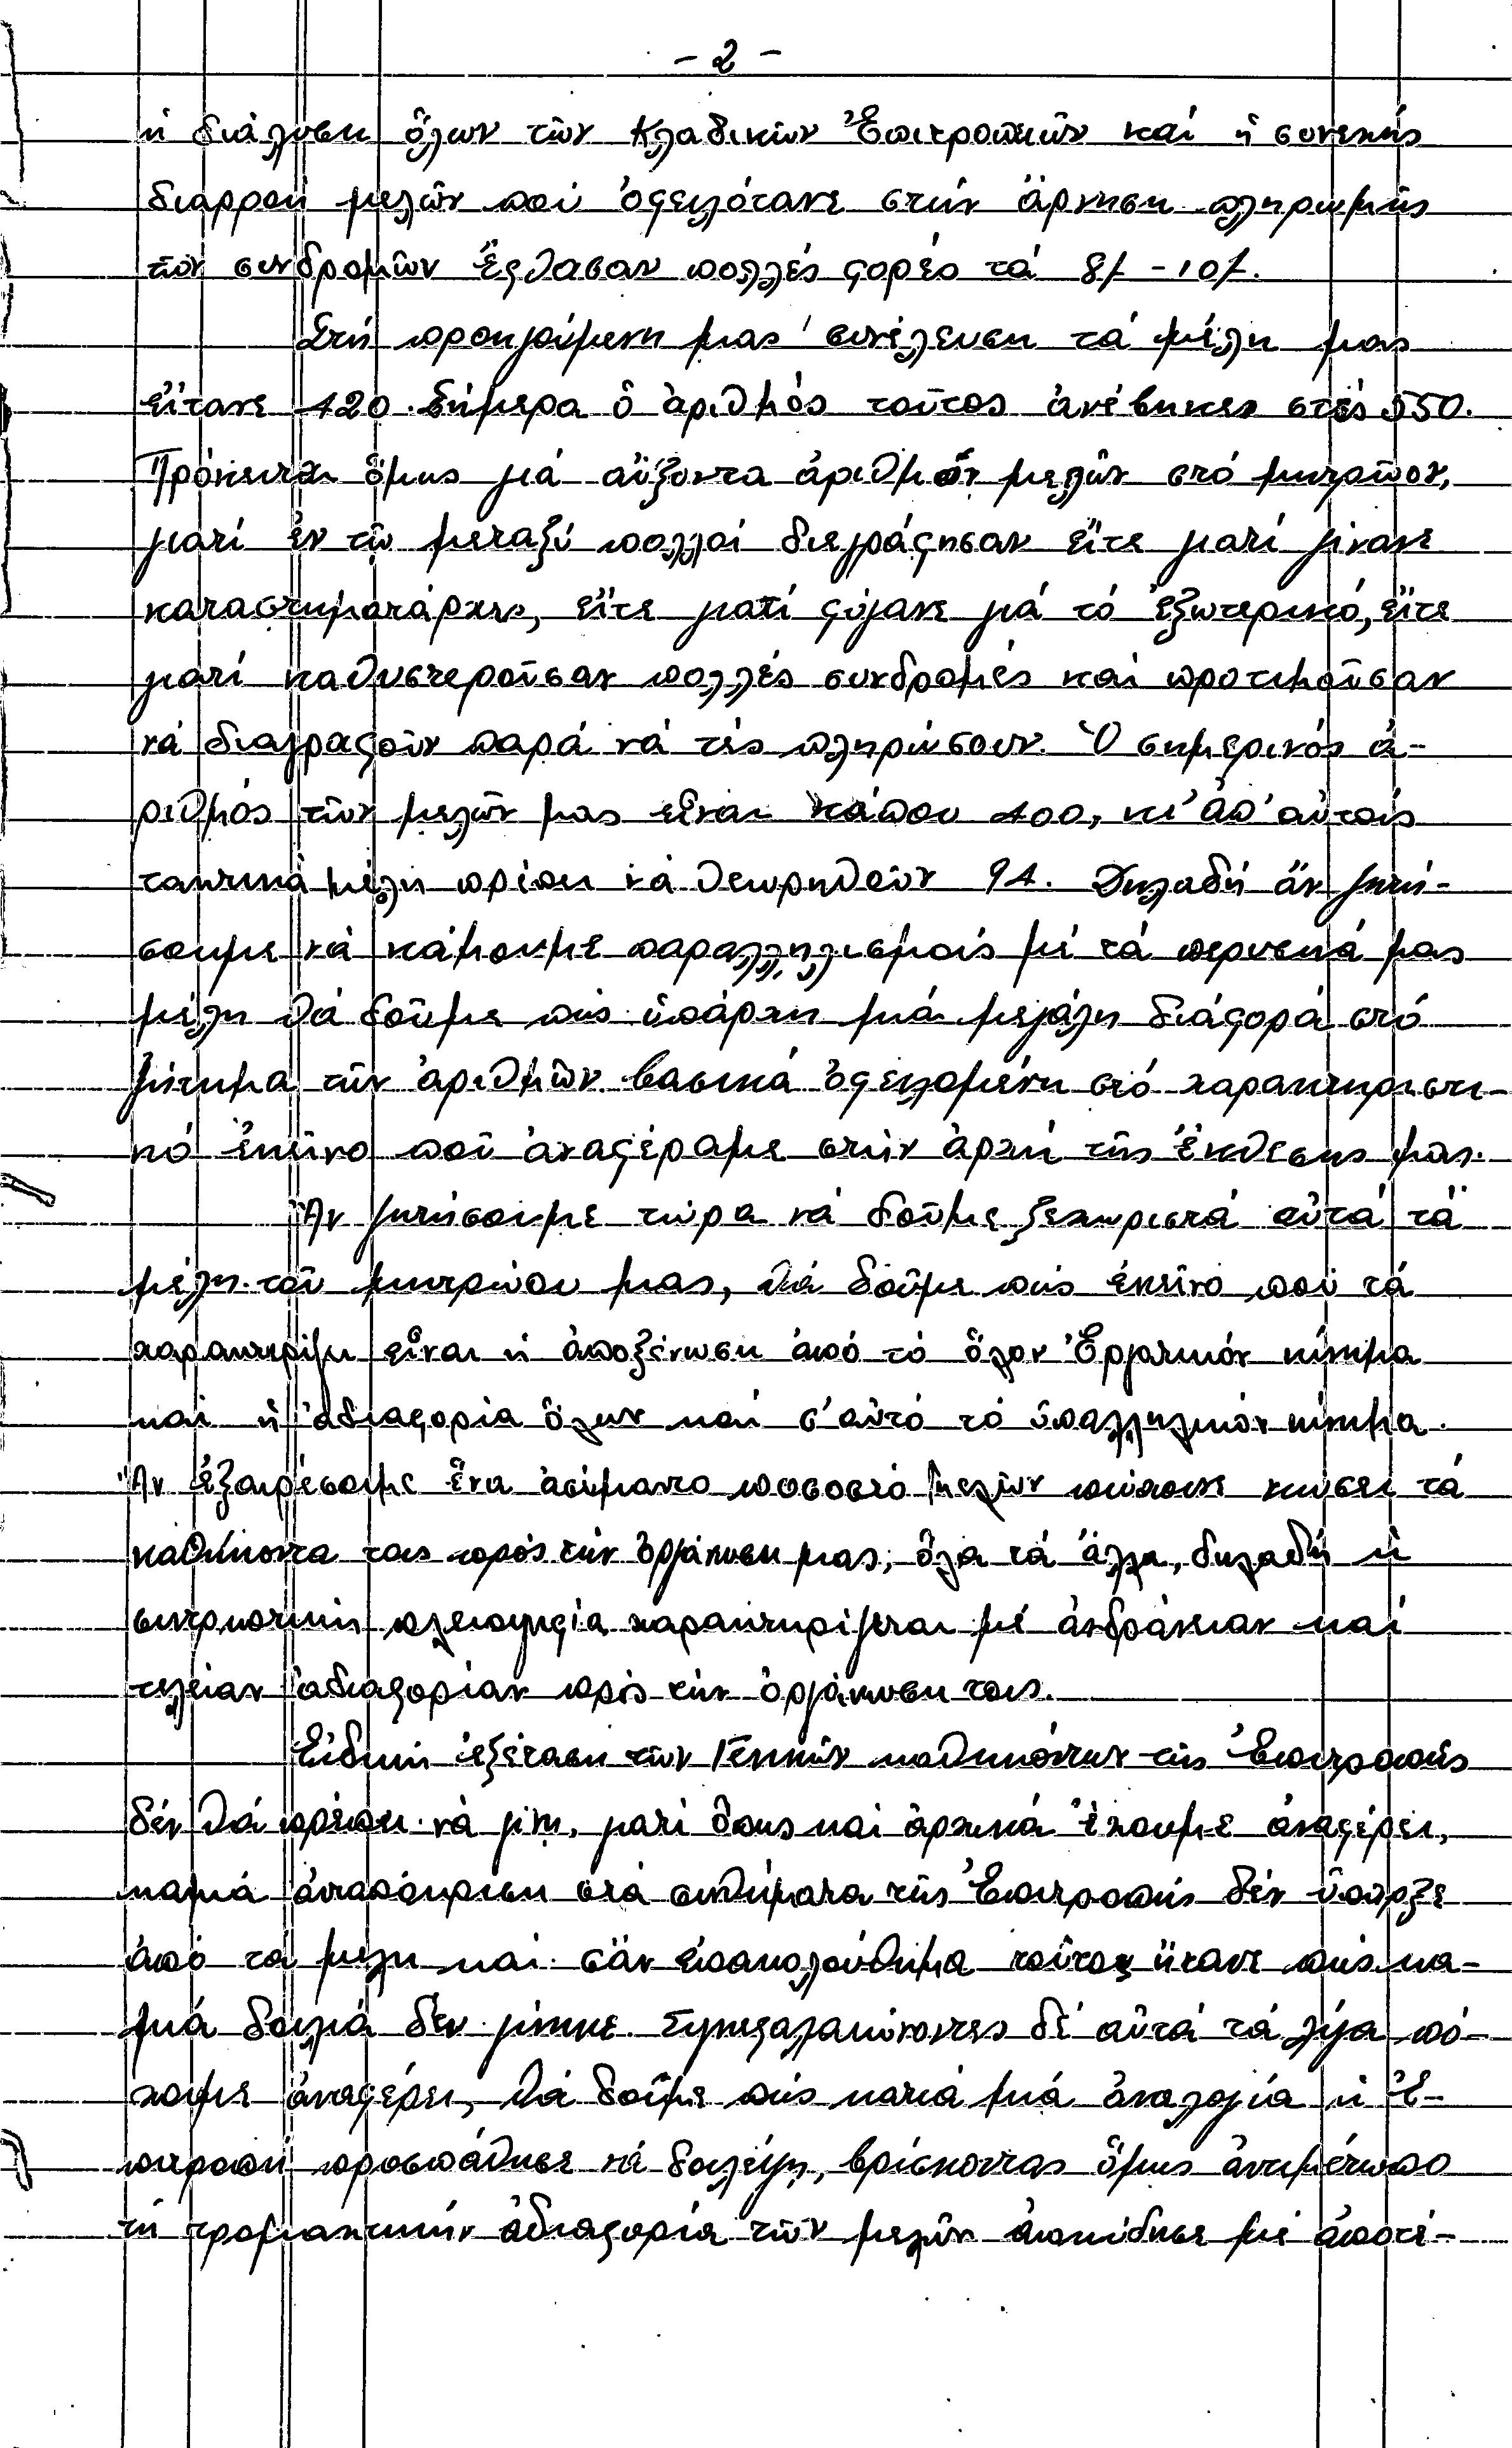 - 2 -
ἡ διάλυση ὅλων τῶν Κλαδικῶν Ἐπιτροπειῶν καί ἡ συνεχής
διαρροή μελῶν πού ὀφειλότανε στήν ἄρνηση πληρωμῆς
τῶν συνδρομῶν ἔφθασαν πολλές φορές τά 8/- - 10/-.
Στή προηγούμενη μας συνέλευση τά μέλη μας
εἴτανε 420. Σήμερα ὁ ἀριθμός τοῦτος ἀνέβηκεν στές 550.
Πρόκειται ὅμως γιά αὔξοντα ἀριθμόν μελῶν στό μητρῶον,
γιατί ἐν τῷ μεταξύ πολλοί διεγράφησαν εἴτε γιατί γίνανε
καταστηματάρχες, εἴτε γιατί φύγανε γιά τό ἐξωτερικό, εἴτε
γιατί καθυστεροῦσαν πολλές συνδρομές καί προτιμοῦσαν
νά διαγραφοῦν παρά νά τές πληρώσουν. Ὁ σημερινός ἀ-
ριθμός τῶν μελῶν μας εἶναι κάπου 400, κι' ἀπ' αὐτούς
τακτικά μέλη πρέπει νά θεωρηθοῦν 94. Δηλαδή ἄν ζητή-
σουμε νά κάμουμε παραλληλισμούς μέ τά περυσινά μας
μέλη θά δοῦμε πώς ὑπάρχη μιά μεγάλη διάφορά στό
ζήτημα τῶν ἀριθμῶν βασικά ὀφειλομένη στό χαρακτηριστι-
κό ἐκεῖνο πού ἀναφέραμε στήν ἀρχή τῆς ἔκθεσης μας.
Ἄν ζητήσουμε τώρα νά δοῦμε ξεχωριστά αὐτά τά
μέλη τοῦ μητρώου μας, θά δοῦμε πώς ἐκεῖνο πού τά
χαρακτηρίζει εἶναι ἡ ἀποξένωση ἀπό τό ὅλον Ἐργατικόν κίνημα
καί ἡ ἀδιαφορία ὅλων καί σ' αὐτό τό ὑπαλληλικόν κίνημα.
Ἄν ἐξαιρέσουμε ἕνα ἀσήμαντο ποσοστό μελῶν πώχουνε νιώσει τά
καθήκοντα τους πρός τήν ὀργάνωση μας, ὅλα τά ἄλλα, δηλαδή ἡ
συντριπτική πλειοψηφία χαρακτηρίζεται μέ ἀνδράνειαν καί
τελείαν ἀδιαφορίαν πρός τήν ὀργάνωση τους.
Εἰδική ἐξέταση τῶν Γενικῶν καθηκόντων τῆς Ἐπιτροπῆς
δέν θά πρέπει νά γίνη, γιατί ὅπως καί ἀρχικά ἔχουμε ἀναφέρει,
καμιά ἀνταπόκριση στά συνθήματα τῆς Ἐπιτροπῆς δέν ὕπαρξε
ἀπό τά μέλη καί σάν ἐπακολούθημα τούτου ἤτανε πώς κα-
μιά δουλιά δέν γίνηκε. Συγκεφαλαιώνοντες δέ αὐτά τά λίγα πό-
χουμε ἀναφέρει, θά δοῦμε πώς κατά μιά ἀναλογία ἡ Ἐ-
πιτροπή προσπάθησε νά δουλέψη, βρίσκοντας ὅμως ἀντιμέτωπο
τή τρομακτικήν ἀδιαφορία τῶν μελῶν ἀπηύδησε μέ ἀποτέ-